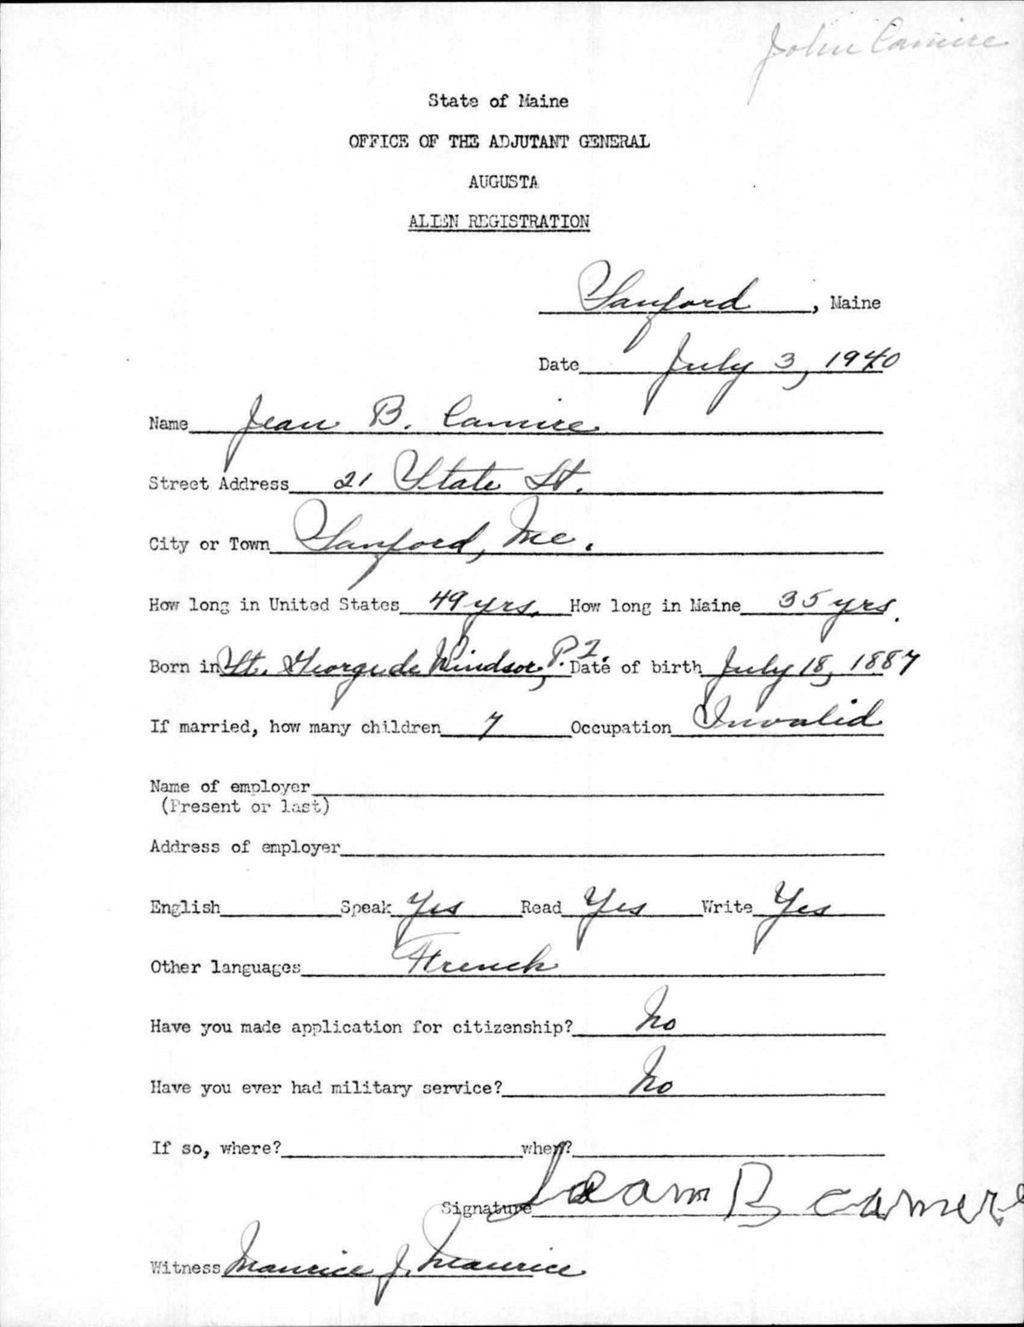 John Camire
State of Maine
OFFICE OF THE ADJUTANT GENERAL
AUGUSTA
ALIEN REGISTRATION
Sanford, Maine
Date July 3, 1940
Name Jean B. Camire
Street Address 21 State St.
City or Town Sanford, Me.
How long in United States 49 yrs. How long in Maine 35 yrs.
Born in St. George de Windsor, P.2. Date of birth July 18, 1887
If married, how many children 7 Occupation Invalid
Name of employer
(Present or last)
Address of employer
English Speak Yes Read Yes Write Yes
Other languages French
Have you made application for citizenship? No
Have you ever had military service? No
If so, where? when?
Signature Jean B Camire
Witness Maurice J. Maurice